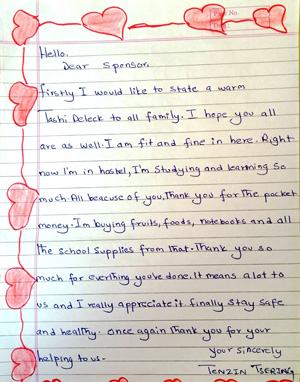 No.
Hello.
Dear Sponsor.
firstly I would like to state a warm
Tashi Deleck to all family. I hope you all
are as well. I am fit and fine in here. Right
now I'm in hostel, I'm studying and learning so
much. All beacuse of you, thank you for the pocket
money. Im buying fruits, foods, notebooks and all
the school supplies from that. Thank you so
much for everthing you've done. It means a lot to
us and I really appreciate it. finally stay safe
and healthy. once again thank you for your
helping to us.
your sincerely
TENZIN TSERING